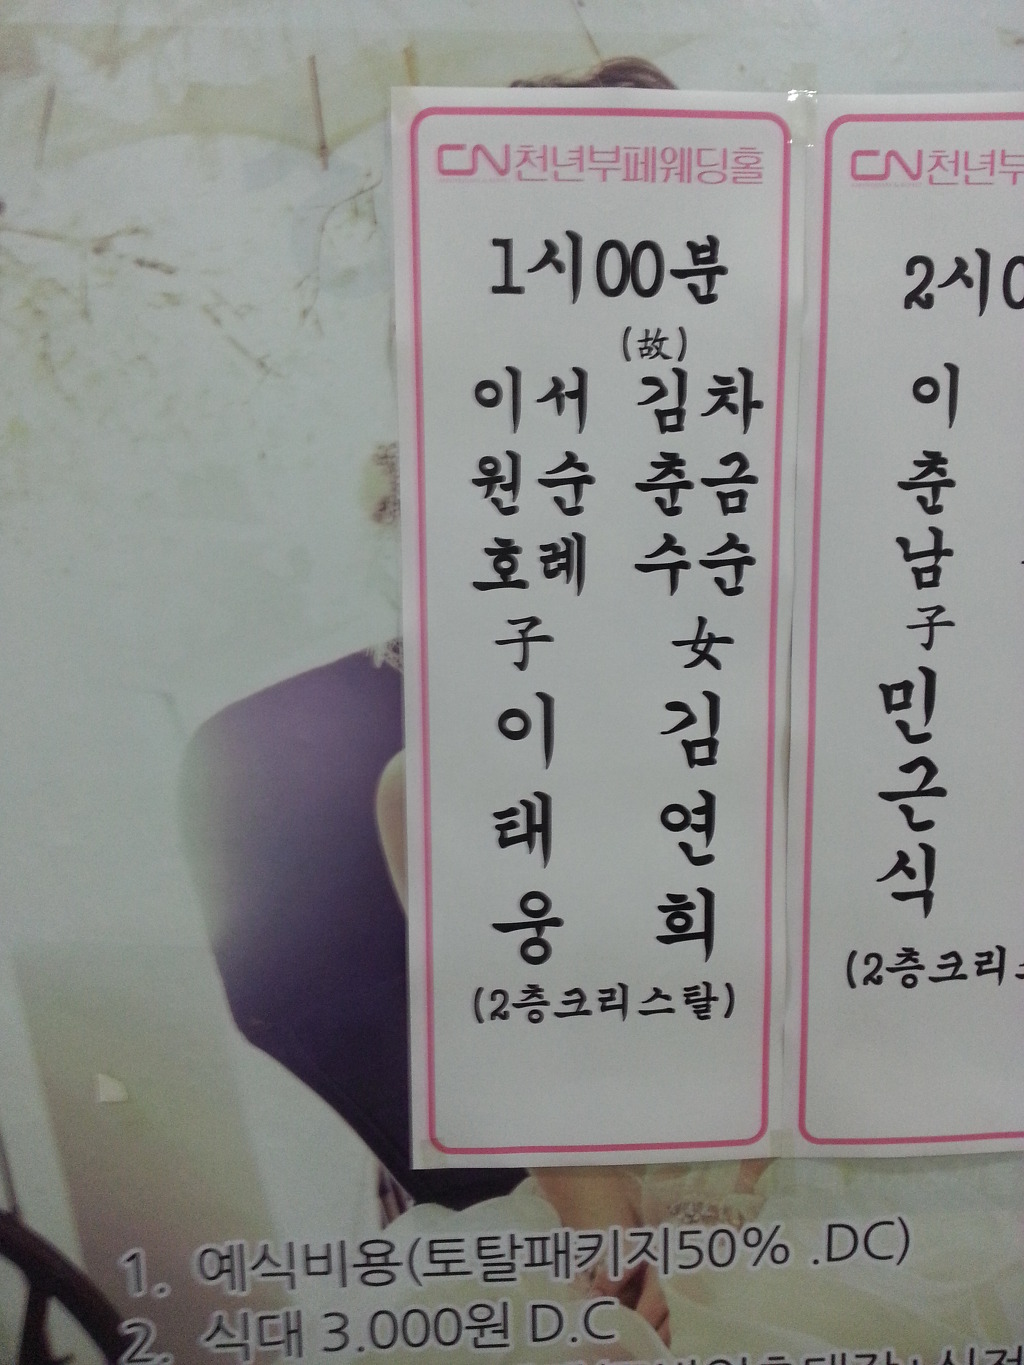 CN천년부페웨딩홀
1시00분
(故)
이서 김차
원순 춘금
호례 수순
子 女
이 김
태 연
웅 희
(2층크리스탈)
CN천년부
2시0
이
춘
남
子
민
근
식
(2층크리
1. 예식비용(토탈패키지50% .DC)
2. 식대 3.000원 D.C